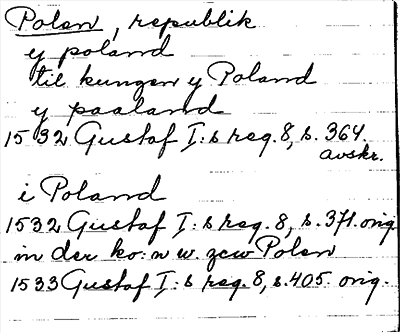 Polen, republik
y poland
til kungen y Poland
y paaland
1532 Gustaf I:s reg. 8, s. 364.
avskr.
i Poland
1532 Gustaf I:s reg. 8, s. 371. orig
in der ko: n w. zcw Polen
1533 Gustaf I:s reg. 8, s. 405. orig.